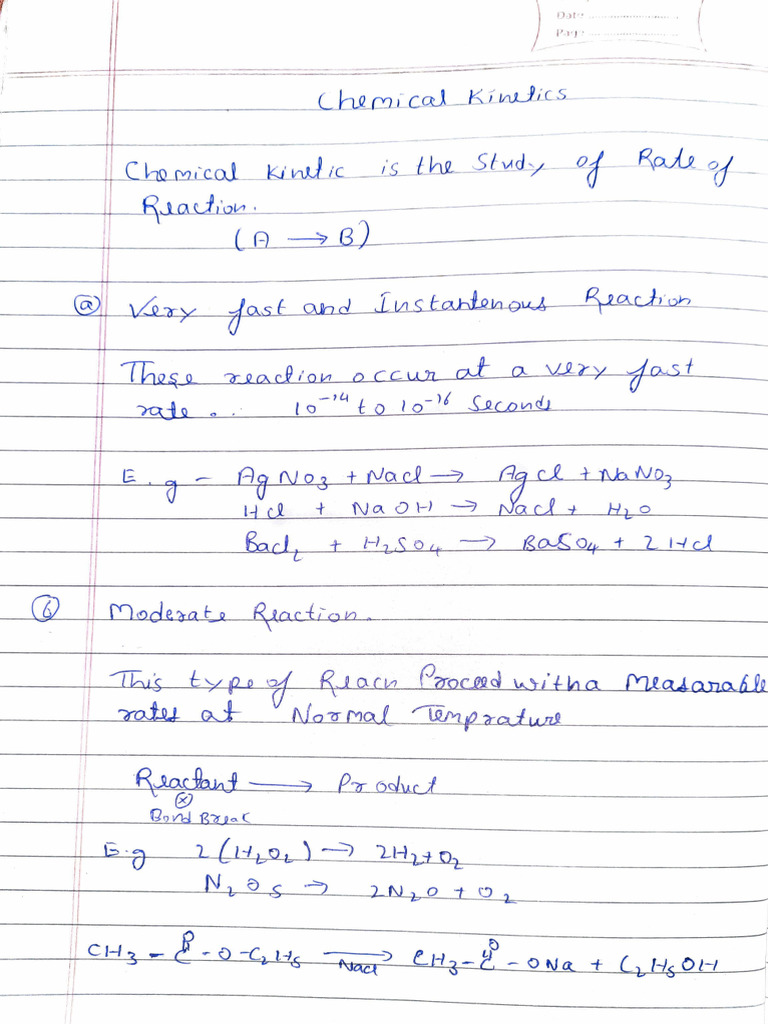 Date
Page
Chemical Kinetics
Chemical Kinetic is the Study of Rate of
Reaction.
(A → B)
ⓐ Very fast and Instantenous Reaction
These reaction occur at a very fast
rate .. 10⁻¹⁴ to 10⁻¹⁶ Seconds
E.g - AgNO₃ + Nacl → Agcl + NaNO₃
Hcl + NaOH → Nacl + H₂O
Bacl₂ + H₂SO₄ → BaSO₄ + 2Hcl
ⓑ Moderate Reaction.
This type of Reacn Proceed with a Measarable
rates at Normal Temprature
Reactant → Product
ⓧ
Bond Break
E.g 2(H₂O₂) → 2H₂+O₂
N₂O₅ → 2N₂O + O₂
O O
CH₃ - C - O - C₂H₅ → CH₃ - C - ONa + C₂H₅OH
Nacl